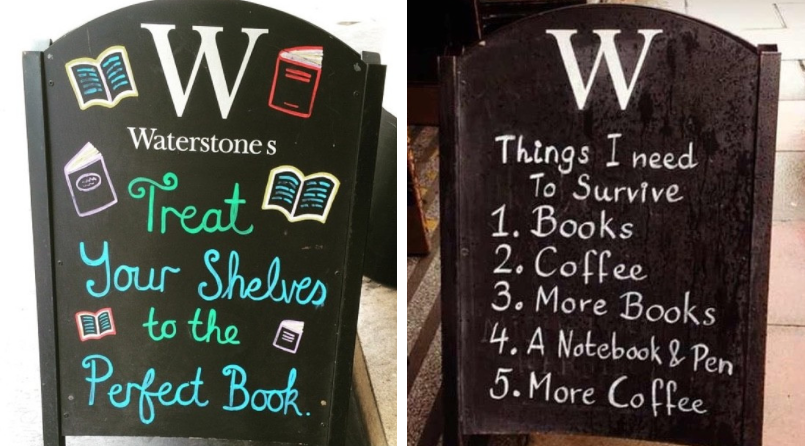 W
Waterstones
Treat
Your Shelves
to the
Perfect Book.
W
Things I need
To Survive
1. Books
2. Coffee
3. More Books
4. A Notebook & Pen
5. More Coffee